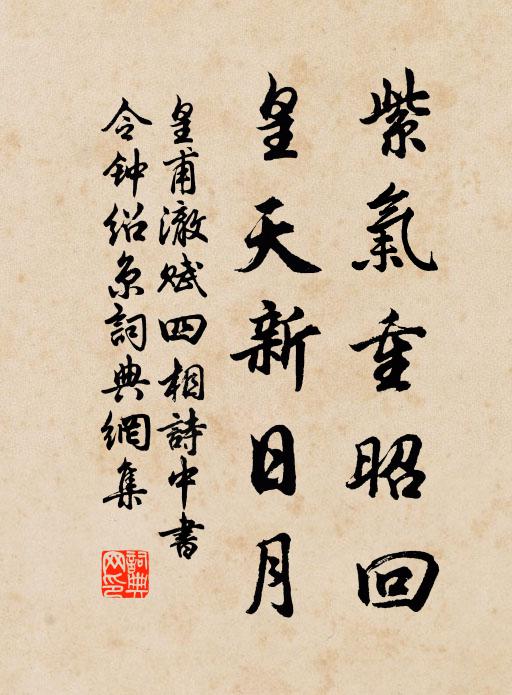 紫氣重昭回
皇天新日月
皇甫澈賦四相詩中書
令钟绍京詞典網集
詞典
网印